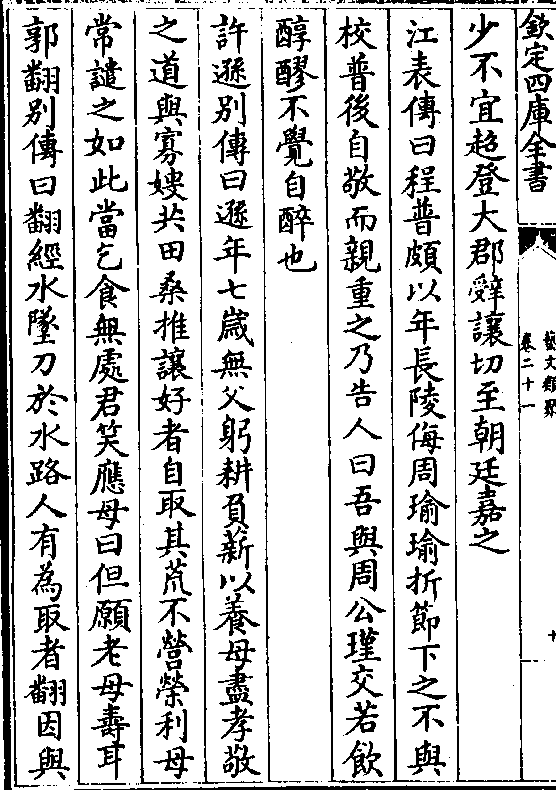 欽定四庫全書
藝文類聚
卷二十一
十
少不宜超登大郡辭讓切至朝廷嘉之
江表傳曰程普頗以年長陵侮周瑜瑜折節下之不與
校普後自敬而親重之乃告人曰吾與周公瑾交若飲
醇醪不覺自醉也
許遜別傳曰遜年七歲無父躬耕負薪以養母盡孝敬
之道與寡嫂共田桑推讓好者自取其荒不營榮利母
常譴之如此當乞食無處君笑應母曰但願老母壽耳
郭翻別傳曰翻經水墜刀於水路人有為取者翻因與